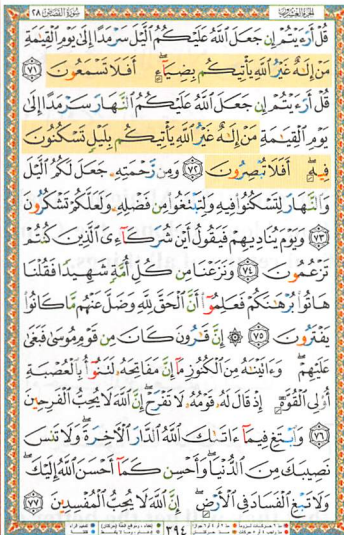 سورة القصص ٢٨
الجزء العشرون
قُلْ أَرَءَيْتُمْ إِن جَعَلَ ٱللَّهُ عَلَيْكُمُ ٱلَّيْلَ سَرْمَدًا إِلَىٰ يَوْمِ ٱلْقِيَـٰمَةِ
مَنْ إِلَـٰهٌ غَيْرُ ٱللَّهِ يَأْتِيكُم بِضِيَآءٍ ۖ أَفَلَا تَسْمَعُونَ ٧١
قُلْ أَرَءَيْتُمْ إِن جَعَلَ ٱللَّهُ عَلَيْكُمُ ٱلنَّهَارَ سَرْمَدًا إِلَىٰ
يَوْمِ ٱلْقِيَـٰمَةِ مَنْ إِلَـٰهٌ غَيْرُ ٱللَّهِ يَأْتِيكُم بِلَيْلٍ تَسْكُنُونَ
فِيهِ ۖ أَفَلَا تُبْصِرُونَ ٧٢ وَمِن رَّحْمَتِهِۦ جَعَلَ لَكُمُ ٱلَّيْلَ
وَٱلنَّهَارَ لِتَسْكُنُوا۟ فِيهِ وَلِتَبْتَغُوا۟ مِن فَضْلِهِۦ وَلَعَلَّكُمْ تَشْكُرُونَ
٧٣ وَيَوْمَ يُنَادِيهِمْ فَيَقُولُ أَيْنَ شُرَكَآءِىَ ٱلَّذِينَ كُنتُمْ
تَزْعُمُونَ ٧٤ وَنَزَعْنَا مِن كُلِّ أُمَّةٍ شَهِيدًا فَقُلْنَا
هَاتُوا۟ بُرْهَـٰنَكُمْ فَعَلِمُوٓا۟ أَنَّ ٱلْحَقَّ لِلَّهِ وَضَلَّ عَنْهُم مَّا كَانُوا۟
يَفْتَرُونَ ٧٥ ۞ إِنَّ قَـٰرُونَ كَانَ مِن قَوْمِ مُوسَىٰ فَبَغَىٰ
عَلَيْهِمْ ۖ وَءَاتَيْنَـٰهُ مِنَ ٱلْكُنُوزِ مَآ إِنَّ مَفَاتِحَهُۥ لَتَنُوٓأُ بِٱلْعُصْبَةِ
أُو۟لِى ٱلْقُوَّةِ إِذْ قَالَ لَهُۥ قَوْمُهُۥ لَا تَفْرَحْ ۖ إِنَّ ٱللَّهَ لَا يُحِبُّ ٱلْفَرِحِينَ
٧٦ وَٱبْتَغِ فِيمَآ ءَاتَىٰكَ ٱللَّهُ ٱلدَّارَ ٱلْـَٔاخِرَةَ ۖ وَلَا تَنسَ
نَصِيبَكَ مِنَ ٱلدُّنْيَا ۖ وَأَحْسِن كَمَآ أَحْسَنَ ٱللَّهُ إِلَيْكَ ۖ
وَلَا تَبْغِ ٱلْفَسَادَ فِى ٱلْأَرْضِ ۖ إِنَّ ٱللَّهَ لَا يُحِبُّ ٱلْمُفْسِدِينَ ٧٧
٣٩٤